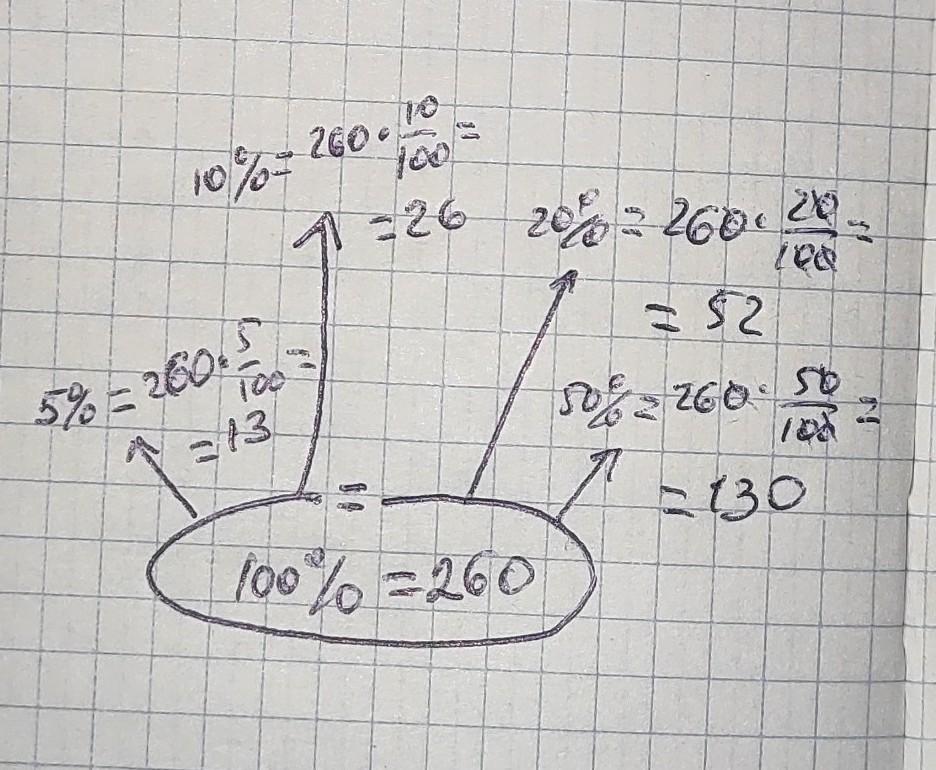 10% = 260 · 10/100 =
= 26
20% = 260 · 20/100 =
= 52
5% = 260 · 5/100 =
= 13
50% = 260 · 50/100 =
= 130
=
100% = 260